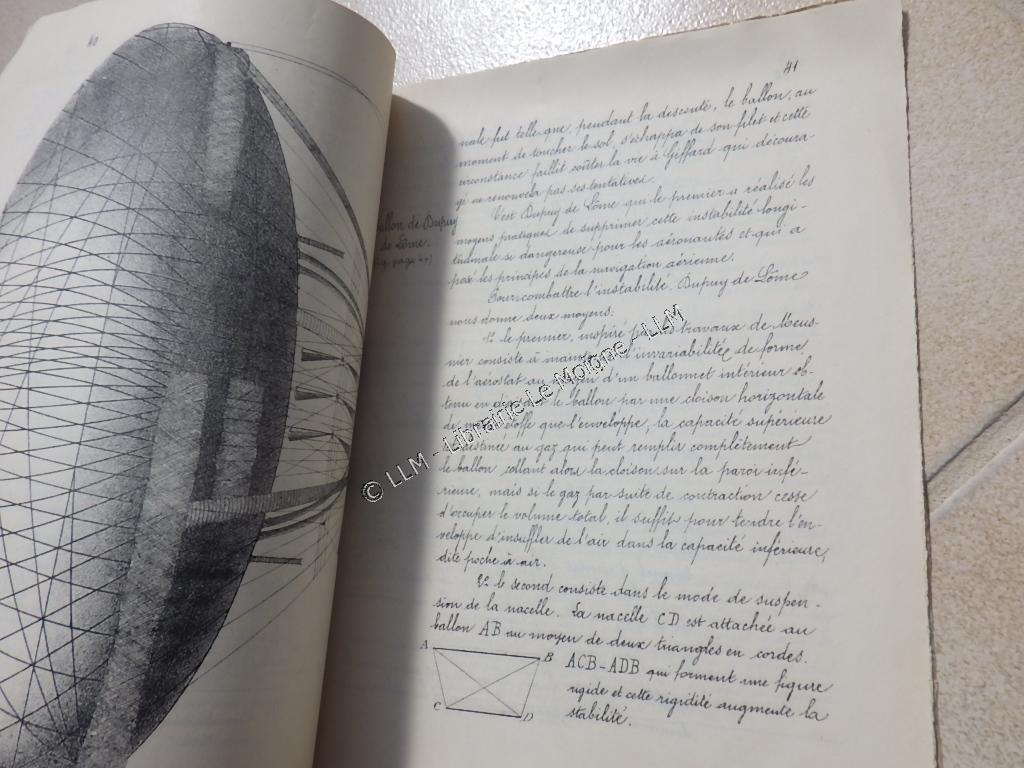 40
41
nale fut telle que, pendant la descente, le ballon, au
moment de toucher le sol, s'échappa de son filet et cette
circonstance faillit coûter la vie à Giffard qui découra-
gé ne renouvela pas ses tentatives.
C'est Dupuy de Lôme qui le premier a réalisé les
moyens pratiques de supprimer cette instabilité longi-
tudinale si dangereuse pour les aéronautes et qui a
posé les principes de la navigation aérienne.
allon de Dupuy
de Lôme.
page
Pour combattre l'instabilité, Dupuy de Lôme
nous donne deux moyens:
1º le premier, inspiré par les travaux de Meus-
nier consiste à maintenir l'invariabilité de forme
de l'aérostat au moyen d'un ballonnet intérieur ob-
tenu en divisant le ballon par une cloison horizontale
de même étoffe que l'enveloppe, la capacité supérieure
destinée au gaz qui peut remplir complètement
le ballon collant alors la cloison sur la paroi infé-
rieure, mais si le gaz par suite de contraction cesse
d'occuper le volume total, il suffit pour tendre l'en-
veloppe d'insuffler de l'air dans la capacité inférieure,
dite poche à air.
2º le second consiste dans le mode de suspen-
sion de la nacelle. La nacelle CD est attachée au
ballon AB au moyen de deux triangles en cordes.
ACB-ADB qui forment une figure
rigide et cette rigidité augmente la
stabilité.
A
B
C
D
© LLM - Librairie Le Moigne - LLM